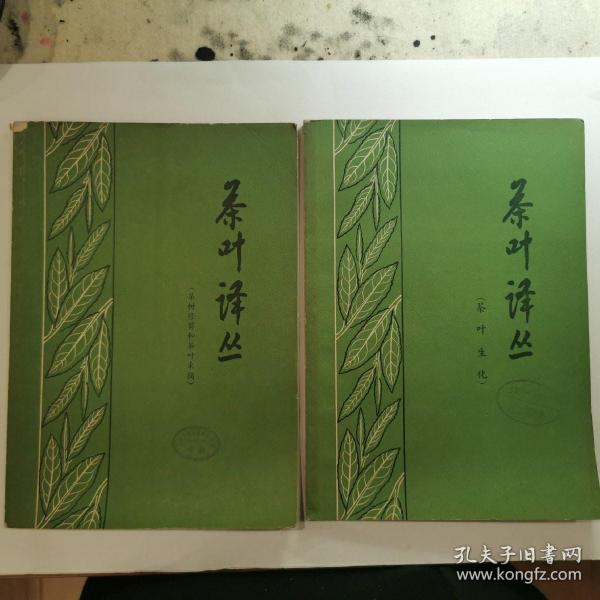 茶叶译丛
(茶树修剪和茶叶采摘)
茶叶译丛
(茶叶生化)
孔夫子旧書网
www.kongfz.com